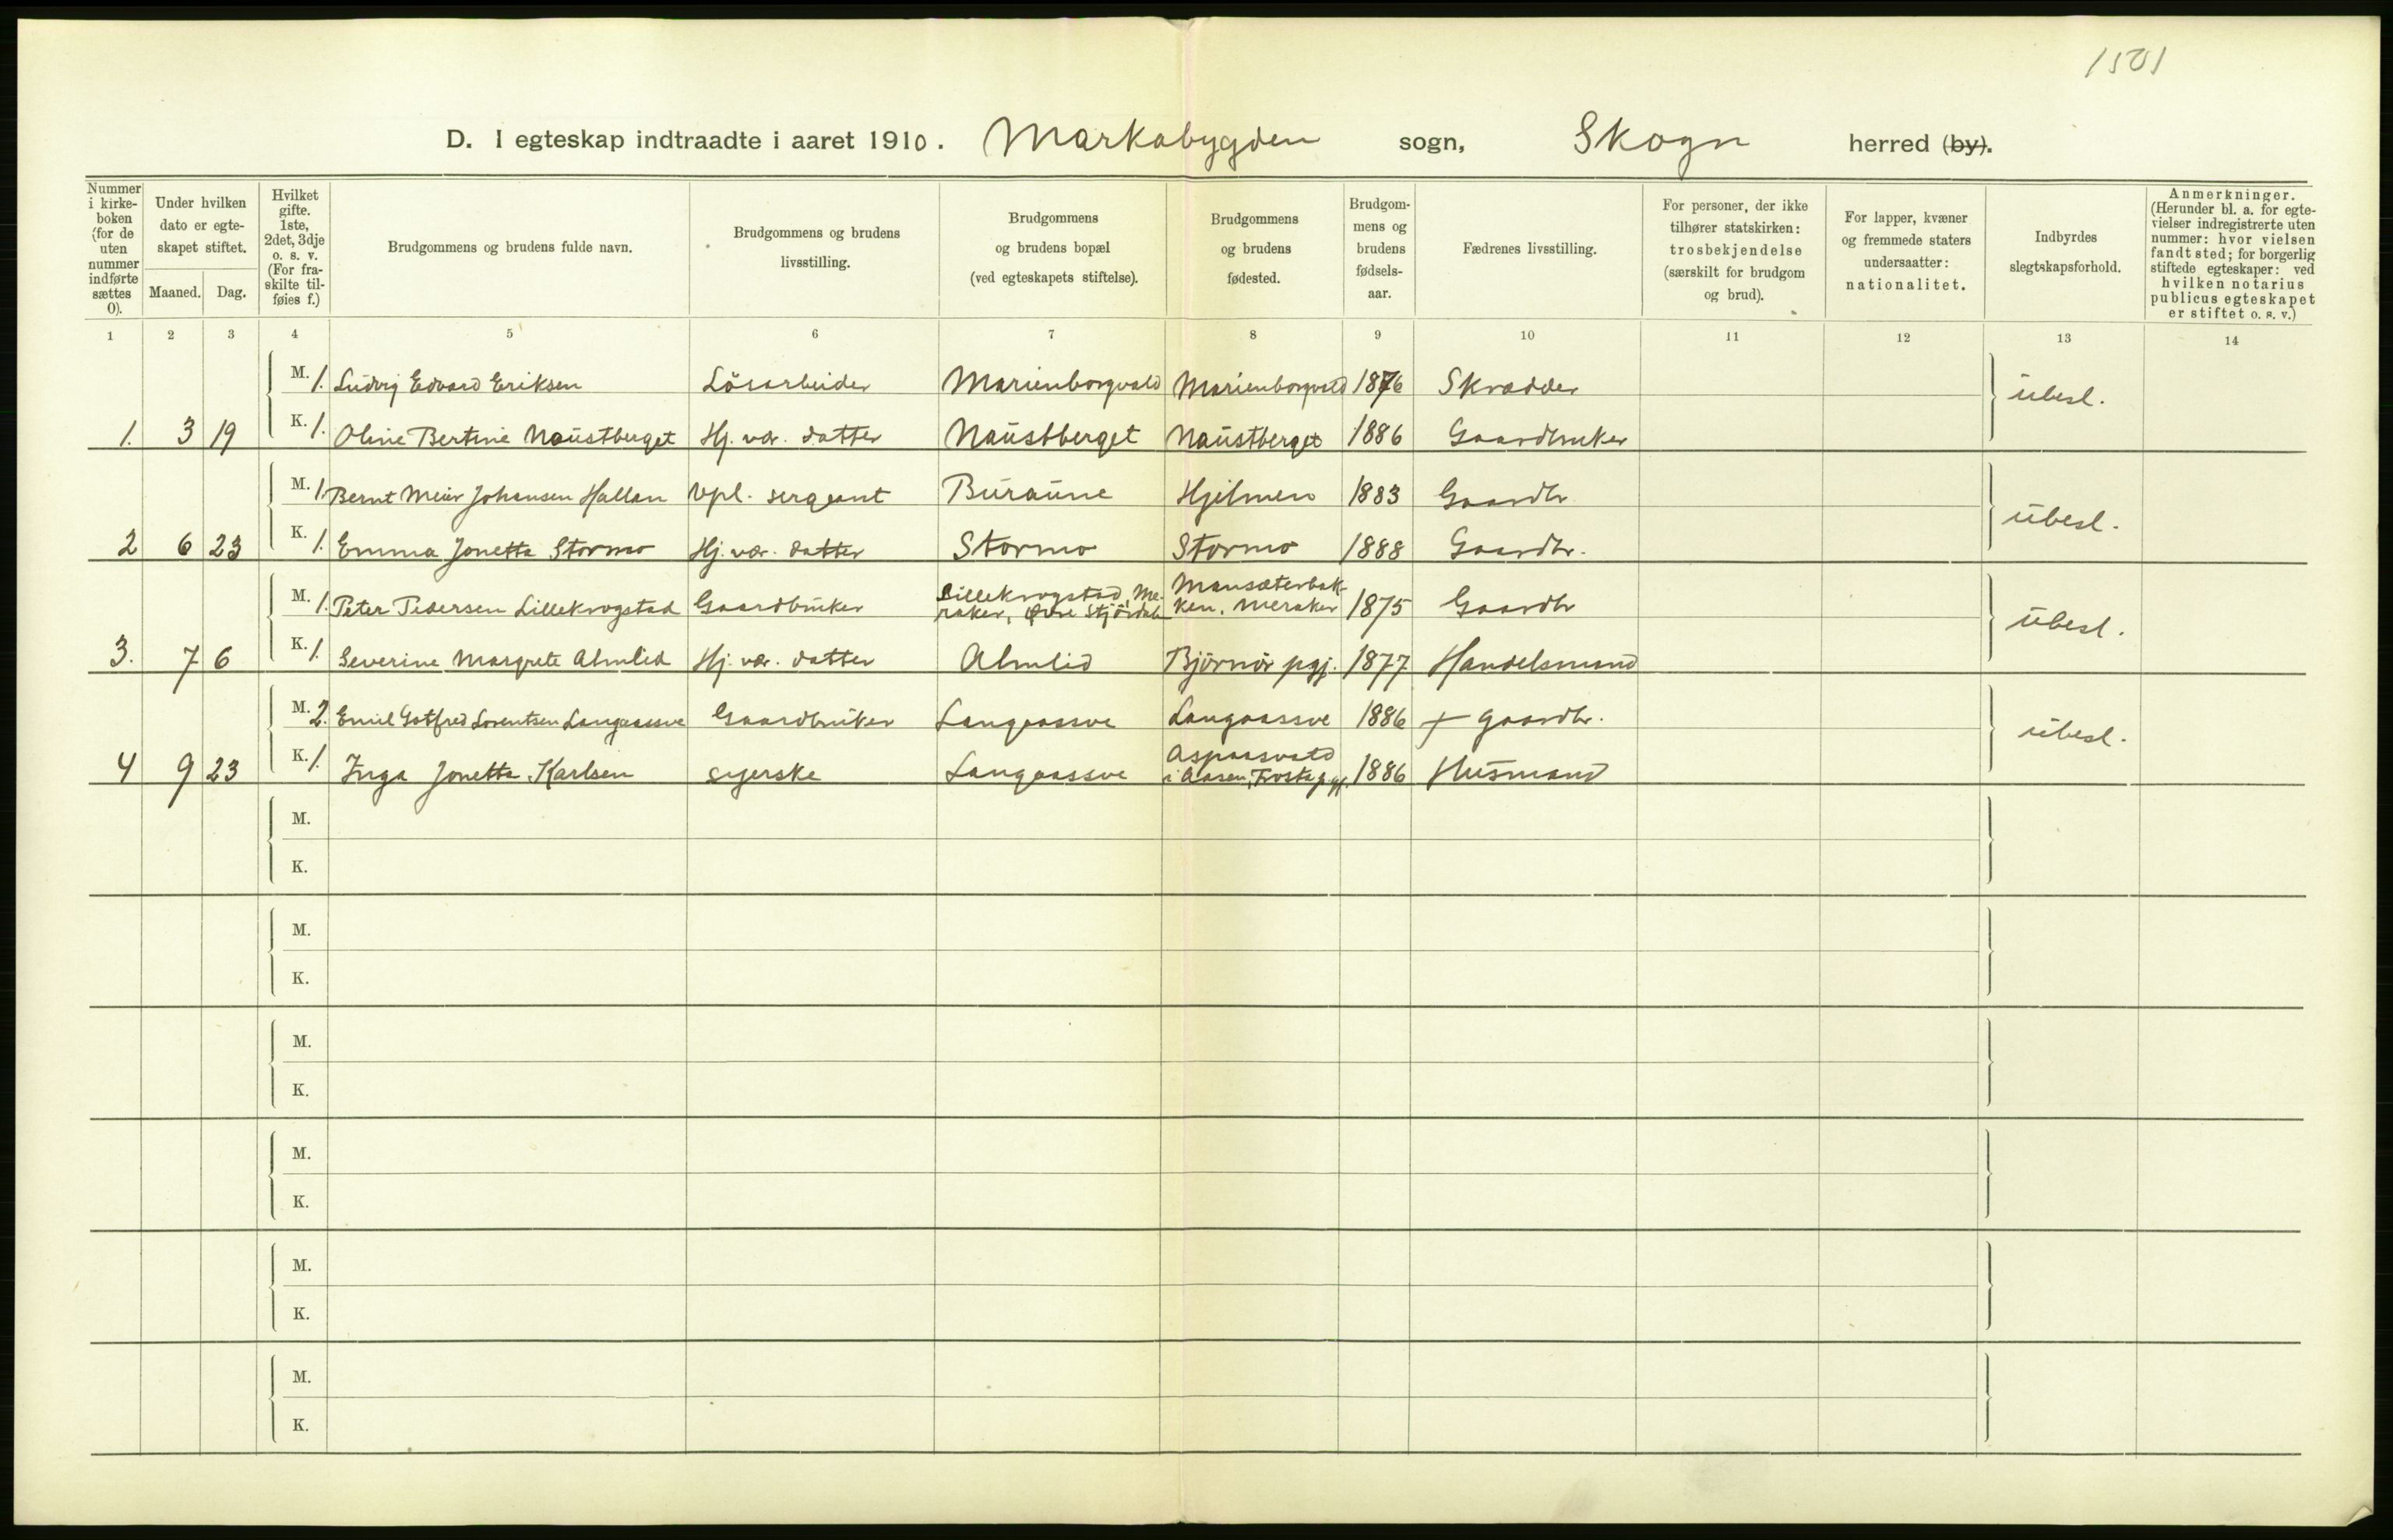 1501
D. I egteskap indtraadte i aaret 1910. Markabygden sogn, Skogn herred (by).
Nummer i kirkeboken (for de uten nummer indførte sættes 0).
Under hvilken dato er egteskapet stiftet.
Maaned. Dag.
Hvilket gifte. 1ste, 2det, 3dje o. s. v. (For fraskilte tilføies f.)
Brudgommens og brudens fulde navn.
Brudgommens og brudens livsstilling.
Brudgommens og brudens bopæl (ved egteskapets stiftelse).
Brudgommens og brudens fødested.
Brudgommens og brudens fødselsaar.
Fædrenes livsstilling.
For personer, der ikke tilhører statskirken: trosbekjendelse (særskilt for brudgom og brud).
For lapper, kvæner og fremmede staters undersaatter: nationalitet.
Indbyrdes slegtskapsforhold.
Anmerkninger. (Herunder bl. a. for egtevielser indregistrerte uten nummer: hvor vielsen fandt sted; for borgerlig stiftede egteskaper: ved hvilken notarius publicus egteskapet er stiftet o. s. v.)
1 2 3 4 5 6 7 8 9 10 11 12 13 14
M. 1. Ludvig Edvard Eriksen Lösarbeider Marienborgvald Marienborgvald 1876 Skrædder ubesl.
1. 3 19 K. 1. Oline Bertine Naustberget Hj. vær. datter Naustberget Naustberget 1886 Gaardbruker
M. 1. Bernt Meier Johansen Hallan Vpl. sergeant Buraune Hjelmen 1883 Gaardbr. ubesl.
2 6 23 K. 1. Emma Jonetta Stormo Hj. vær. datter Stormo Stormo 1888 Gaardbr.
M. 1. Peter Pedersen Lillekrogstad Gaardbruker Lillekrogstad, Meraker, Øvre Stjördalen Mansæterbakken, Meraker 1875 Gaardbr ubesl.
3. 7 6 K. 1. Severine Margrete Almlid Hj. vær. datter Almlid Björnör pgj. 1877 Handelsmand
M. 2. Emil Gotfred Lorentsen Langaassve Gaardbruker Langaassve Langaassve 1886 + gaardbr. ubesl.
4 9 23 K. 1. Inga Jonetta Karlsen syerske Langaassve Aspaasvald i Aasen, Frosta pgj. 1886 Husmand
M.
K.
M.
K.
M.
K.
M.
K.
M.
K.
M.
K.